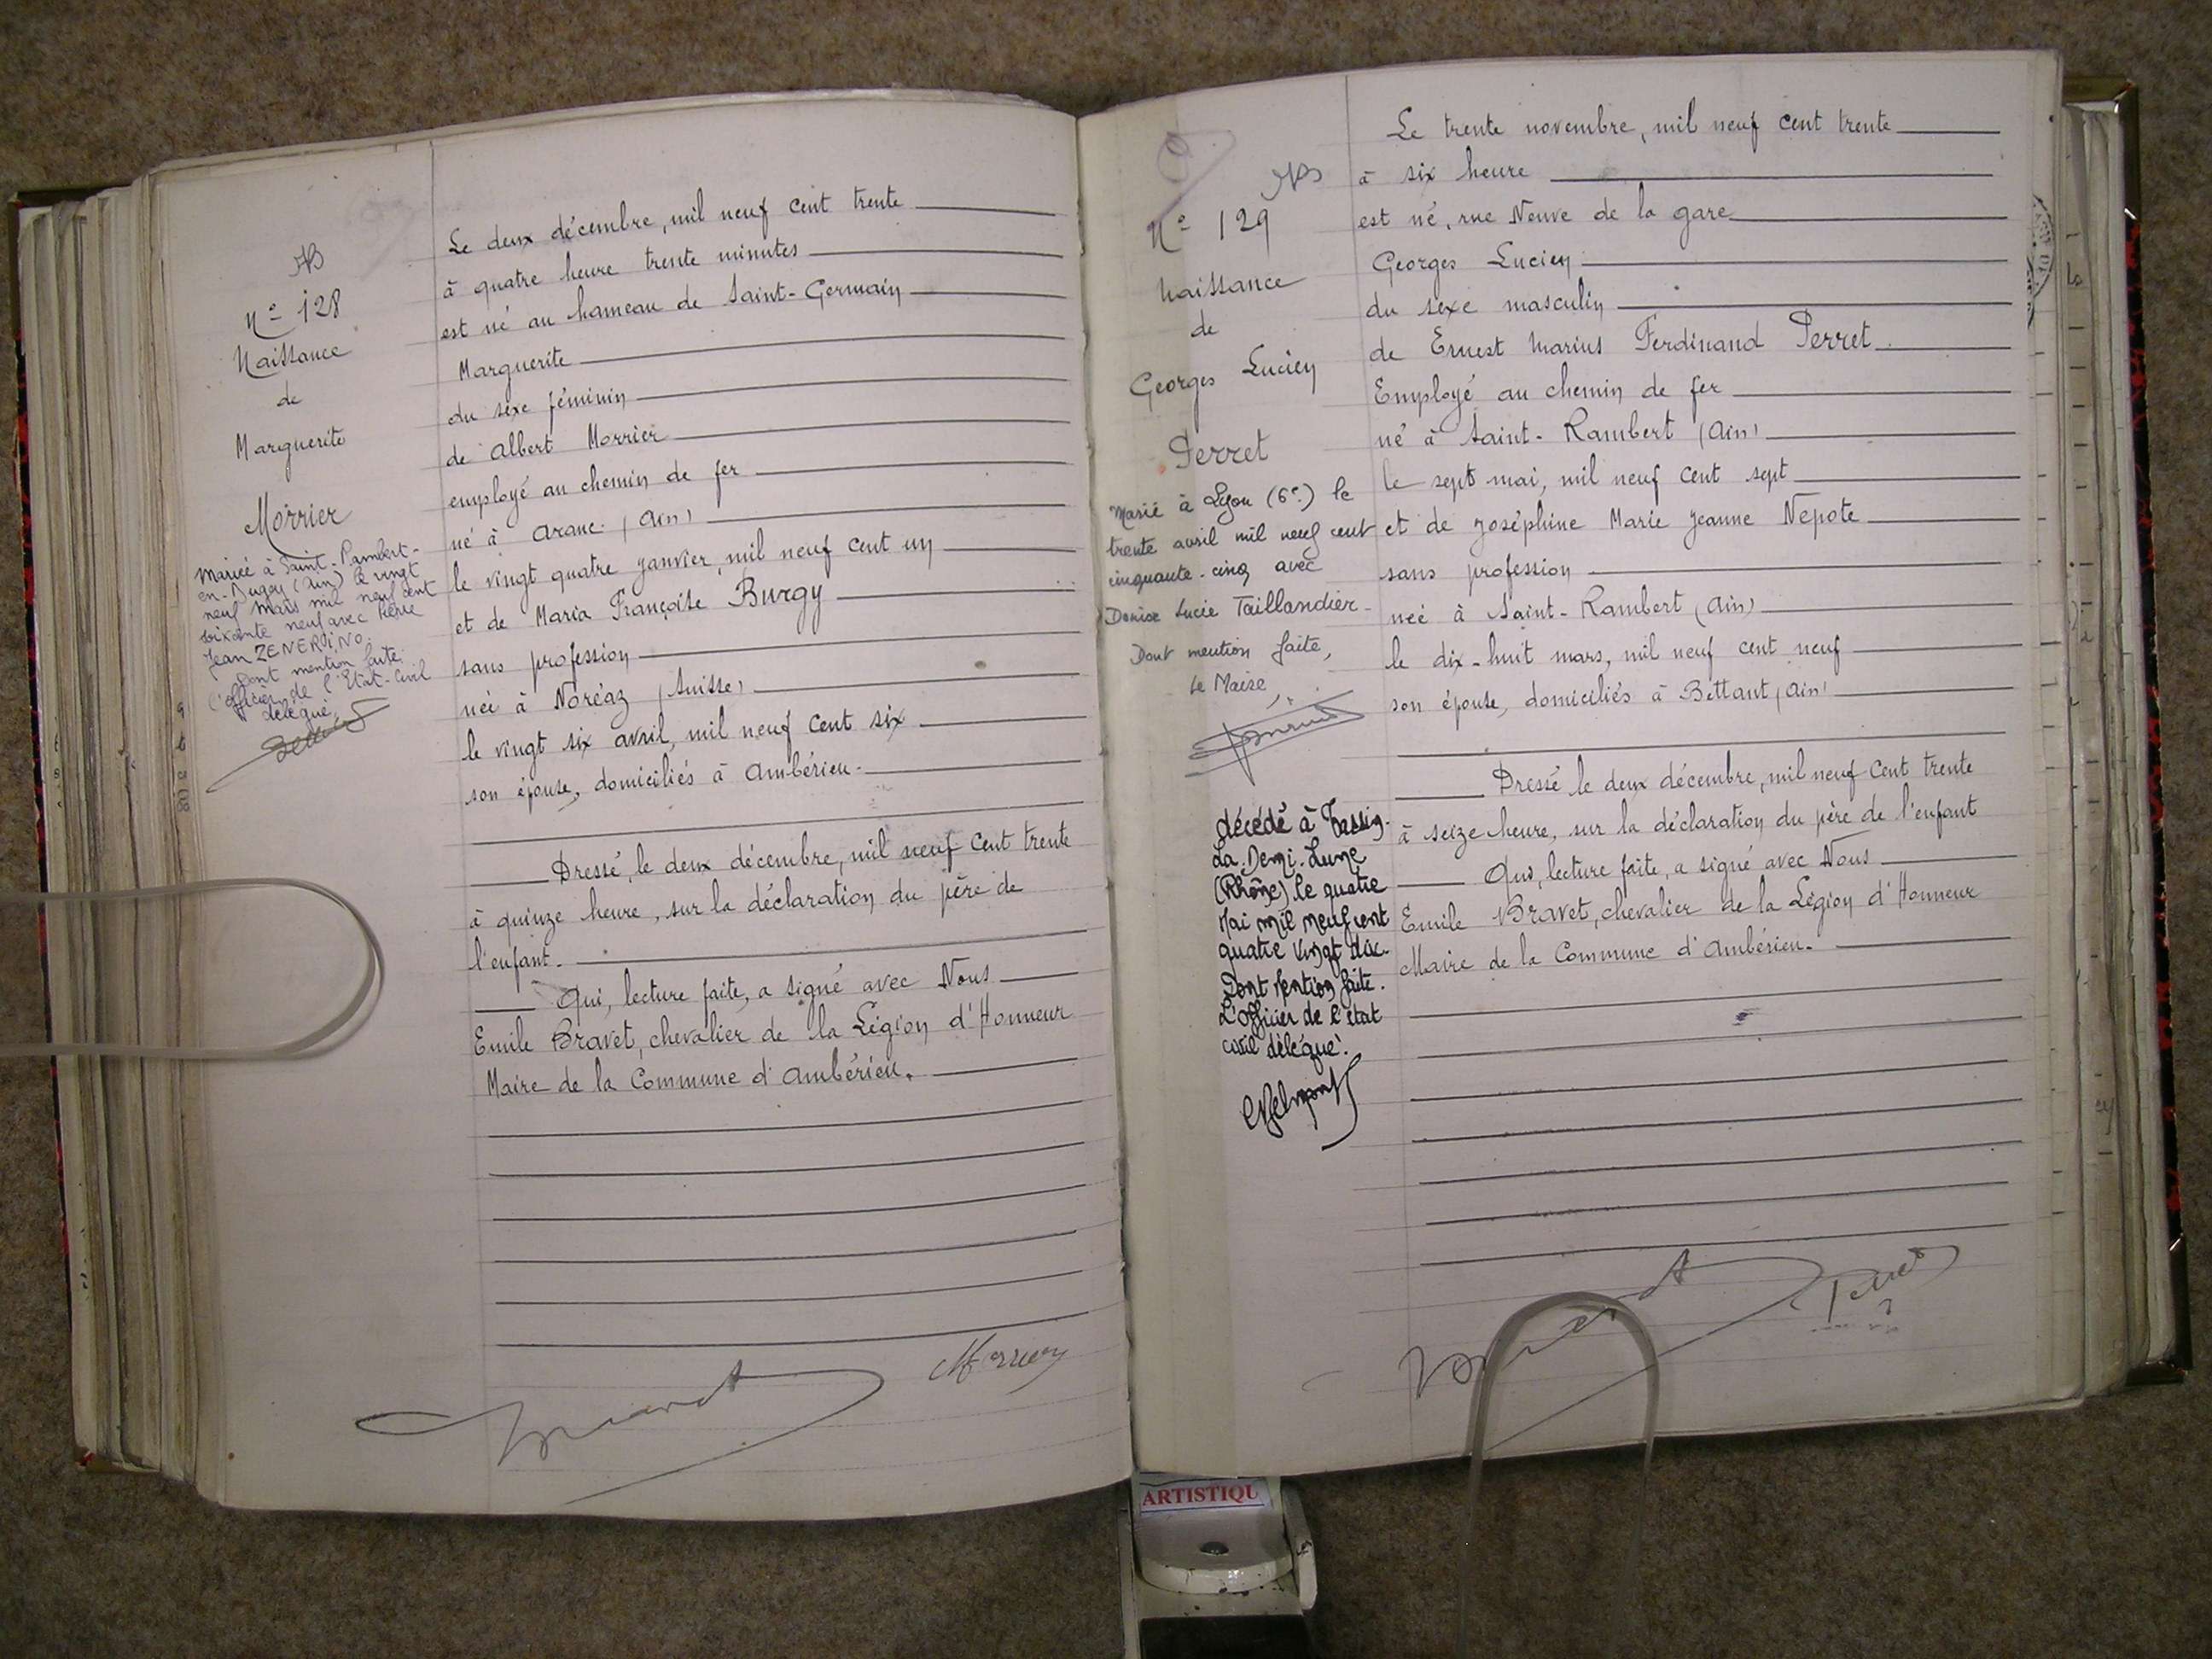 AB
N° 128
Naissance
de
Marguerite
Morrier
Mariée à Saint-Rambert-
en-Bugey (Ain) le vingt
neuf mars mil neuf cent
soixante neuf avec Pierre
Jean ZENERINO.
Dont mention faite.
l'officier de l'Etat-Civil
délégué,
Le deux décembre, mil neuf cent trente
à quatre heure trente minutes
est né au hameau de Saint-Germain
Marguerite
du sexe féminin
de Albert Morrier
employé au chemin de fer
né à Aranc (Ain)
le vingt quatre janvier, mil neuf cent un
et de Maria Françoise Burgy
sans profession
née à Noréaz (Suisse)
le vingt six avril, mil neuf cent six
son épouse, domiciliés à Ambérieu.
Dressé, le deux décembre, mil neuf cent trente
à quinze heure, sur la déclaration du père de
l'enfant.
Qui, lecture faite, a signé avec Nous
Emile Bravet, chevalier de la Légion d'Honneur
Maire de la Commune d'Ambérieu.
Bravet
Morrier
AB
N° 129
Naissance
de
Georges Lucien
Perret
Marié à Lyon (6e) le
trente avril mil neuf cent
cinquante-cinq avec
Denise Lucie Taillandier.
Dont mention faite,
Le Maire,
décédé à Tassin-
La-Demi-Lune
(Rhône) le quatre
Mai mil neuf cent
quatre vingt dix.
Dont Mention faite.
L'Officier de l'état
civil délégué.
Le trente novembre, mil neuf cent trente
à six heure
est né, rue Neuve de la gare
Georges Lucien
du sexe masculin
de Ernest Marius Ferdinand Perret
Employé au chemin de fer
né à Saint-Rambert (Ain)
le sept mai, mil neuf cent sept
et de Joséphine Marie Jeanne Nepote
sans profession
née à Saint-Rambert (Ain)
le dix-huit mars, mil neuf cent neuf
son épouse, domiciliés à Bettant (Ain)
Dressé le deux décembre, mil neuf cent trente
à seize heure, sur la déclaration du père de l'enfant
Qui, lecture faite, a signé avec Nous
Emile Bravet, chevalier de la Légion d'Honneur
Maire de la Commune d'Ambérieu.
Bravet
Perret
ARTISTIQU